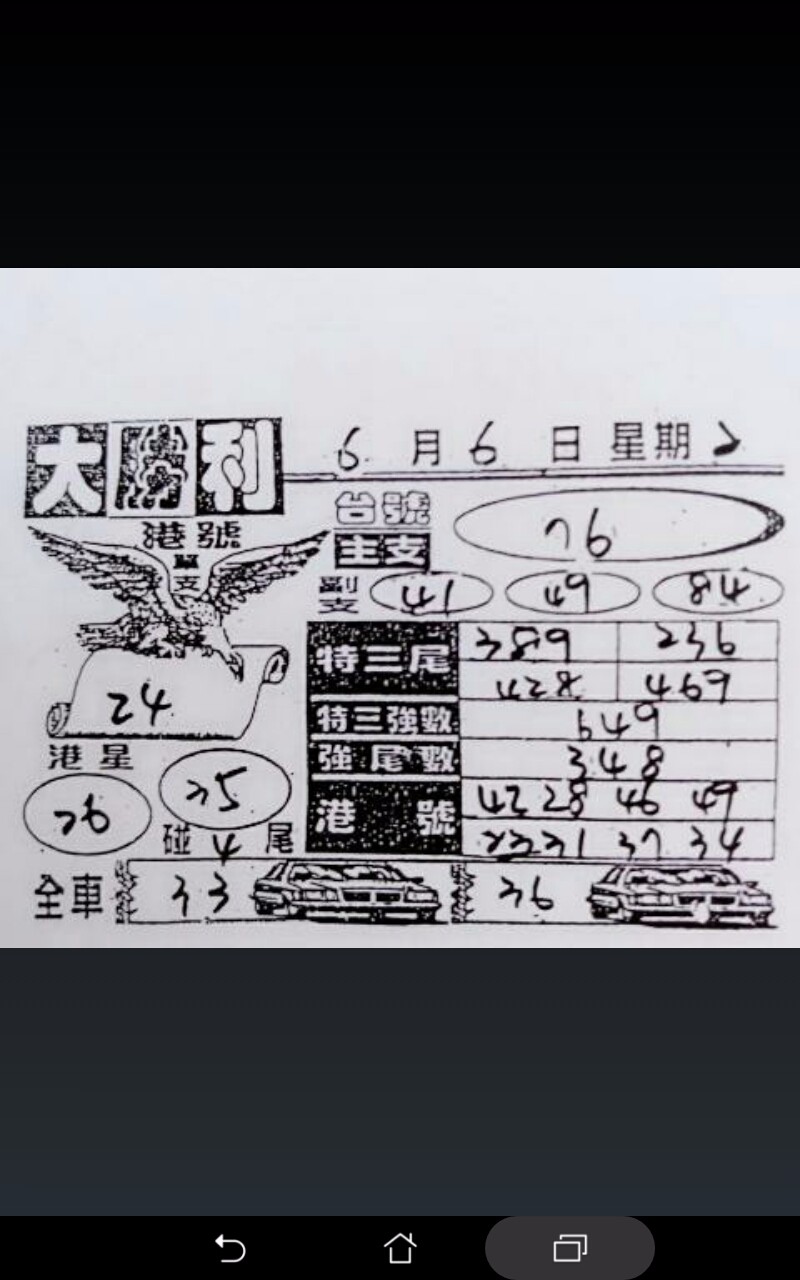 大勝利
6月6日星期2
港號
台號
主支
76
副支
41 49 84
24
特三尾
389 236
428 469
特三強數
649
強尾數
348
港星
26 35
碰4尾
港號
42 28 46 49
31 37 34
全車
33 36